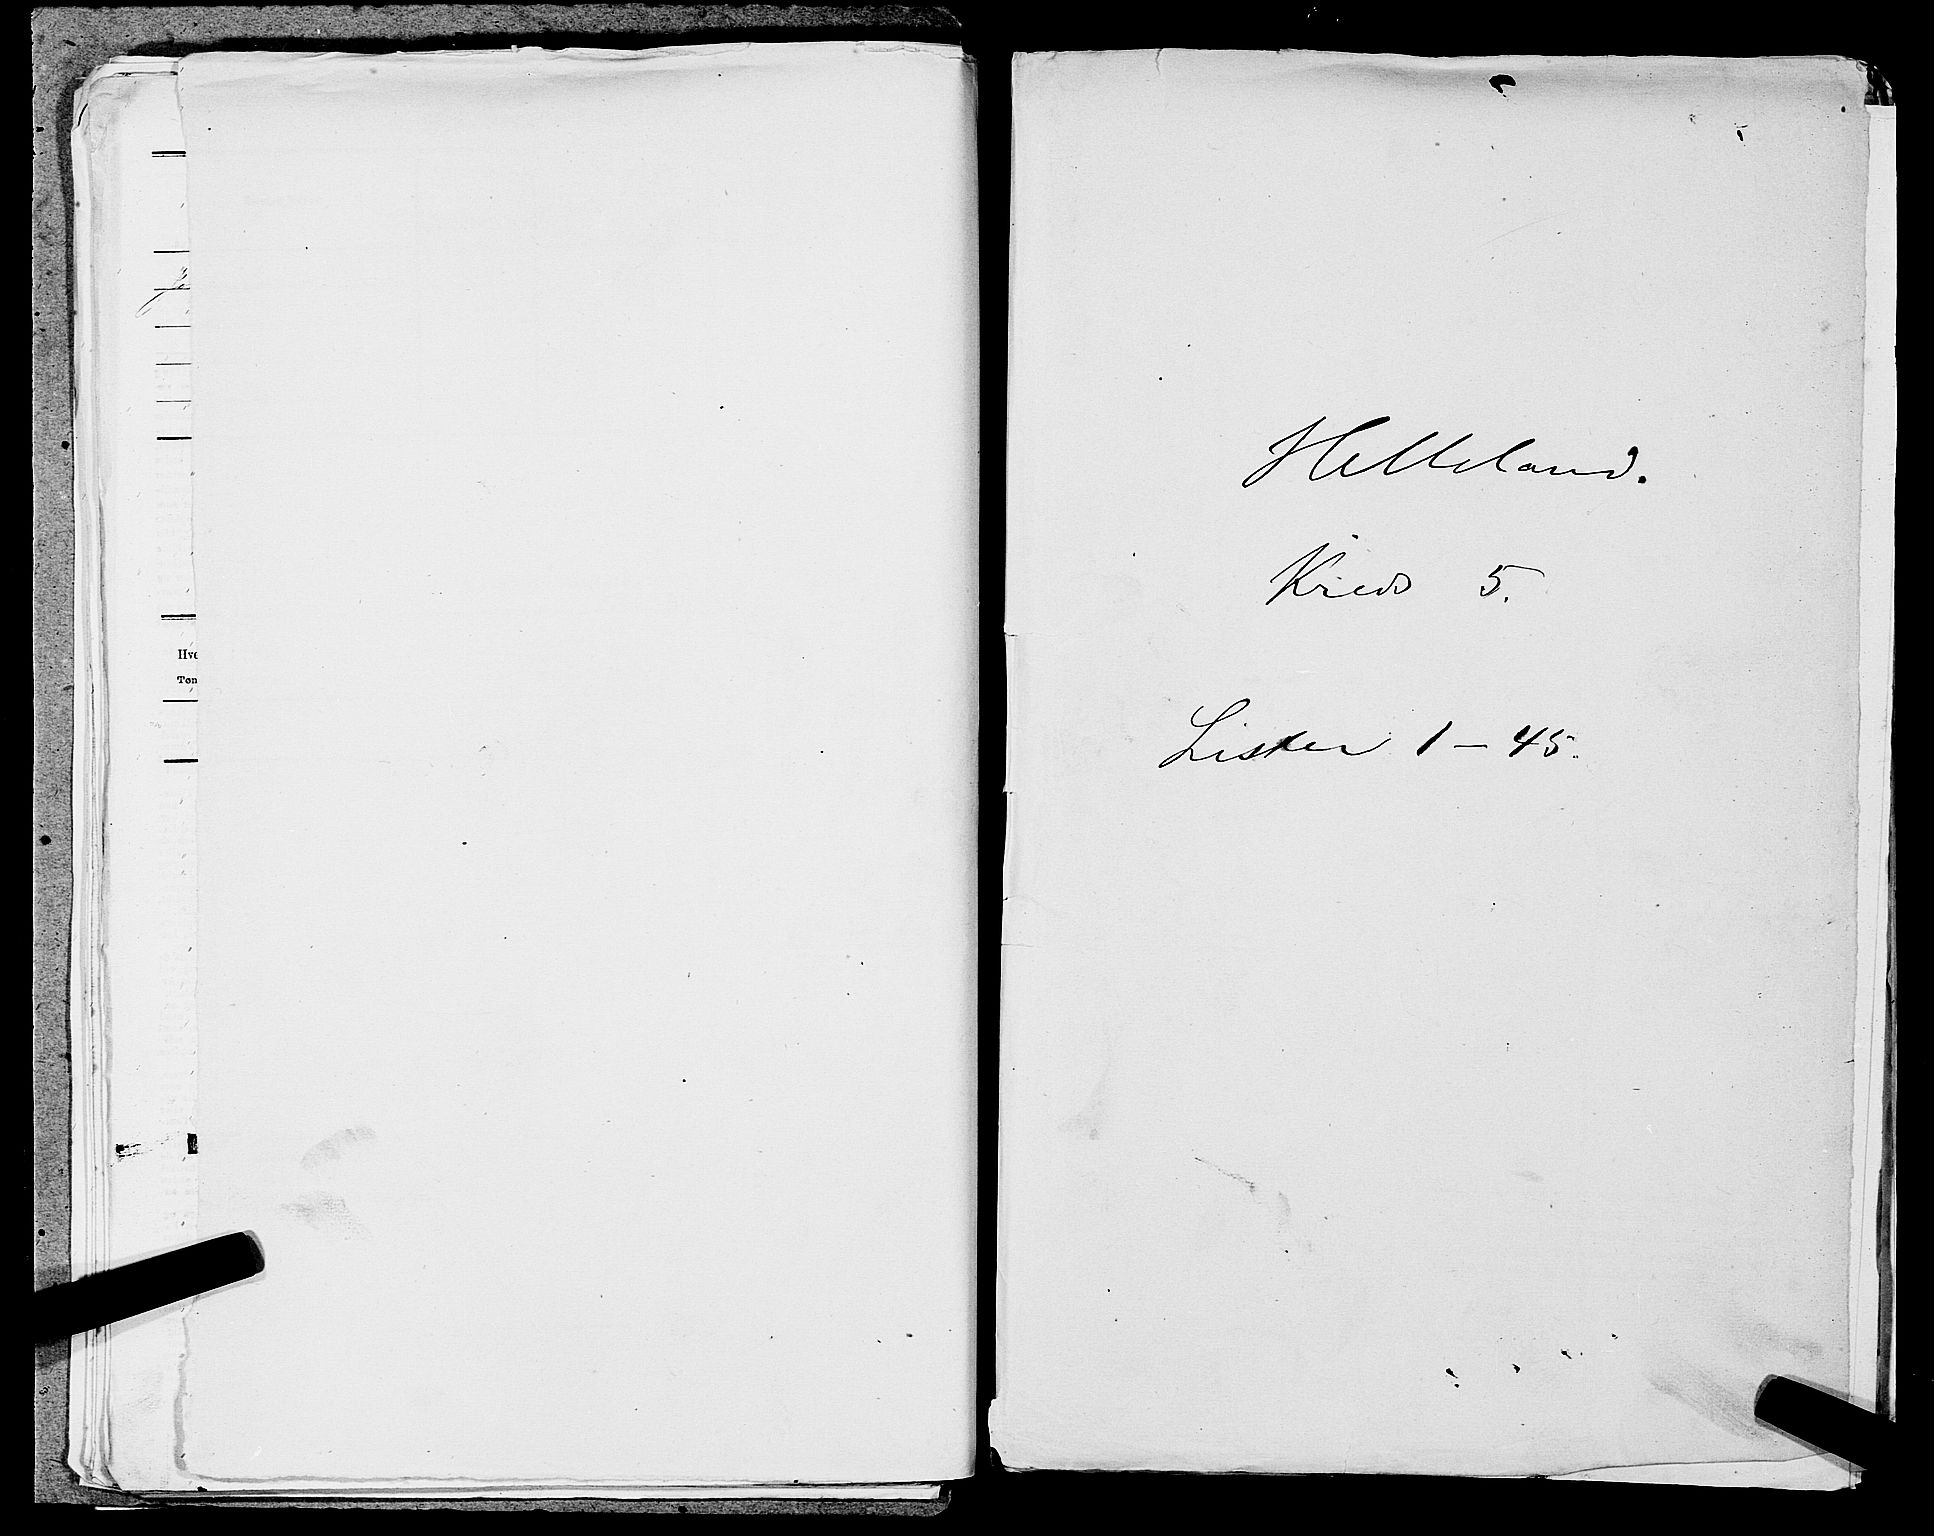 Hve
Tøn
Helleland.
Kreds 5.
Lister 1 - 45.